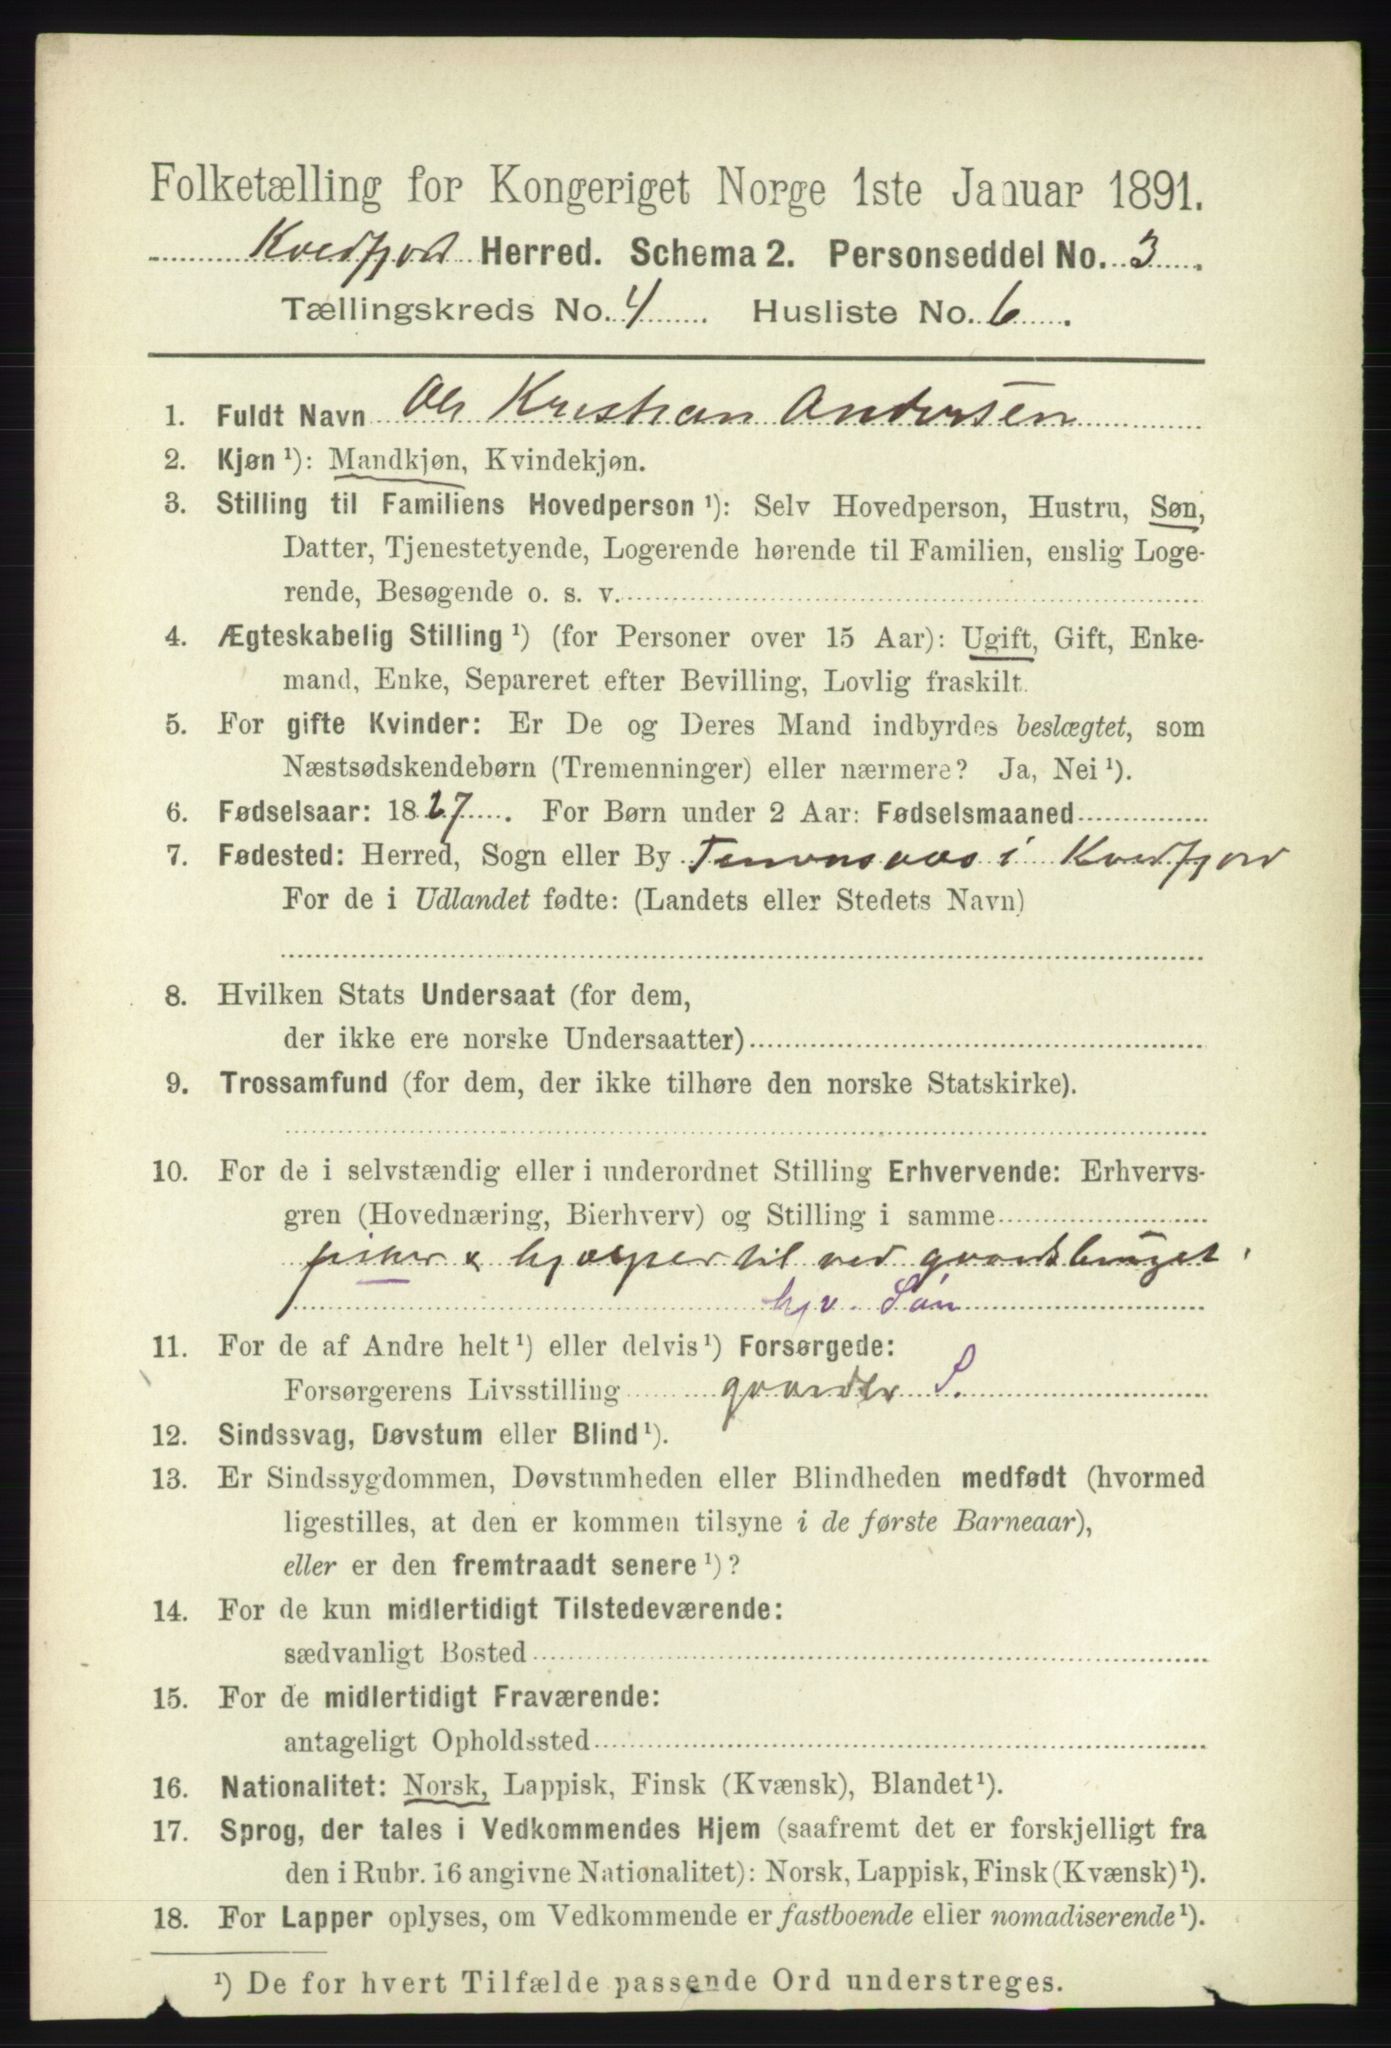 Folketælling for Kongeriget Norge 1ste Januar 1891.
Kvedfjord Herred. Schema 2. Personseddel No. 3
Tællingskreds No. 4 Husliste No. 6
1. Fuldt Navn Ole Kristian Andersen
2. Kjøn ¹): Mandkjøn, Kvindekjøn.
3. Stilling til Familiens Hovedperson ¹): Selv Hovedperson, Hustru, Søn,
Datter, Tjenestetyende, Logerende hørende til Familien, enslig Loge-
rende, Besøgende o. s. v.
4. Ægteskabelig Stilling ¹) (for Personer over 15 Aar): Ugift, Gift, Enke-
mand, Enke, Separeret efter Bevilling, Lovlig fraskilt.
5. For gifte Kvinder: Er De og Deres Mand indbyrdes beslægtet, som
Næstsødskendebørn (Tremenninger) eller nærmere? Ja, Nei ¹).
6. Fødselsaar: 1827. For Børn under 2 Aar: Fødselsmaaned
7. Fødested: Herred, Sogn eller By i Kvedfjord
For de i Udlandet fødte: (Landets eller Stedets Navn)
8. Hvilken Stats Undersaat (for dem,
der ikke ere norske Undersaatter)
9. Trossamfund (for dem, der ikke tilhøre den norske Statskirke).
10. For de i selvstændig eller i underordnet Stilling Erhvervende: Erhvervs-
gren (Hovednæring, Bierhverv) og Stilling i samme
fisker & hjælper til ved gaardsbruget
hjv. Søn
11. For de af Andre helt ¹) eller delvis ¹) Forsørgede:
Forsørgerens Livsstilling S.
12. Sindssvag, Døvstum eller Blind ¹).
13. Er Sindssygdommen, Døvstumheden eller Blindheden medfødt (hvormed
ligestilles, at den er kommen tilsyne i de første Barneaar),
eller er den fremtraadt senere ¹)?
14. For de kun midlertidigt Tilstedeværende:
sædvanligt Bosted
15. For de midlertidigt Fraværende:
antageligt Opholdssted
16. Nationalitet: Norsk, Lappisk, Finsk (Kvænsk), Blandet ¹).
17. Sprog, der tales i Vedkommendes Hjem (saafremt det er forskjelligt fra
den i Rubr. 16 angivne Nationalitet): Norsk, Lappisk, Finsk (Kvænsk) ¹).
18. For Lapper oplyses, om Vedkommende er fastboende eller nomadiserende ¹).
¹) De for hvert Tilfælde passende Ord understreges.